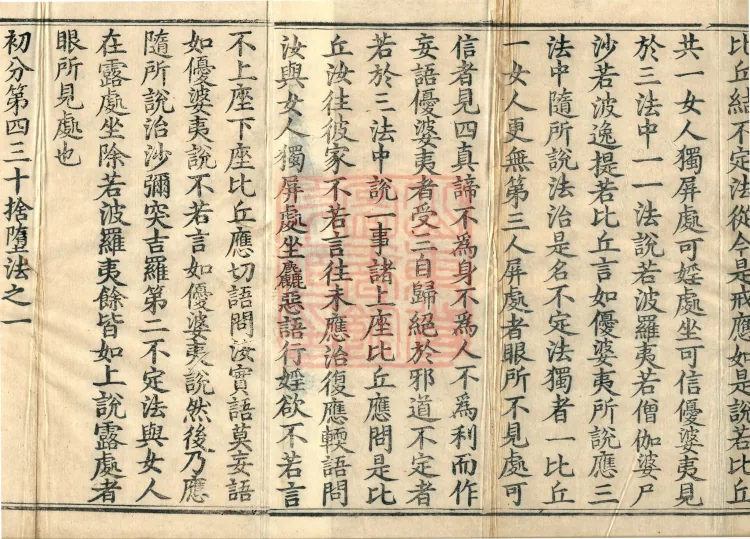 比丘結不定法從今是戒應如是說若比丘
共一女人獨屏處可婬處坐可信優婆夷見
於三法中一一法說若波羅夷若僧伽婆尸
沙若波逸提若比丘言如優婆夷所說應三
法中隨所說法治是名不定法獨者一比丘
一女人更無第三人屏處者眼所不見處可
信者見四真諦不為身不為人不為利而作
妄語優婆夷者受三自歸絕於邪道不定者
若於三法中說一事諸上座比丘應問是比
丘汝往彼家不若言往未應治復應輭語問
汝與女人獨屏處坐麤惡語行婬欲不若言
不上座下座比丘應切語問汝實語莫妄語
如優婆夷說不若言如優婆夷說然後乃應
隨所說治沙彌突吉羅第二不定法與女人
在露處坐除若波羅夷餘皆如上說露處者
眼所見處也
初分第四三十捨墮法之一